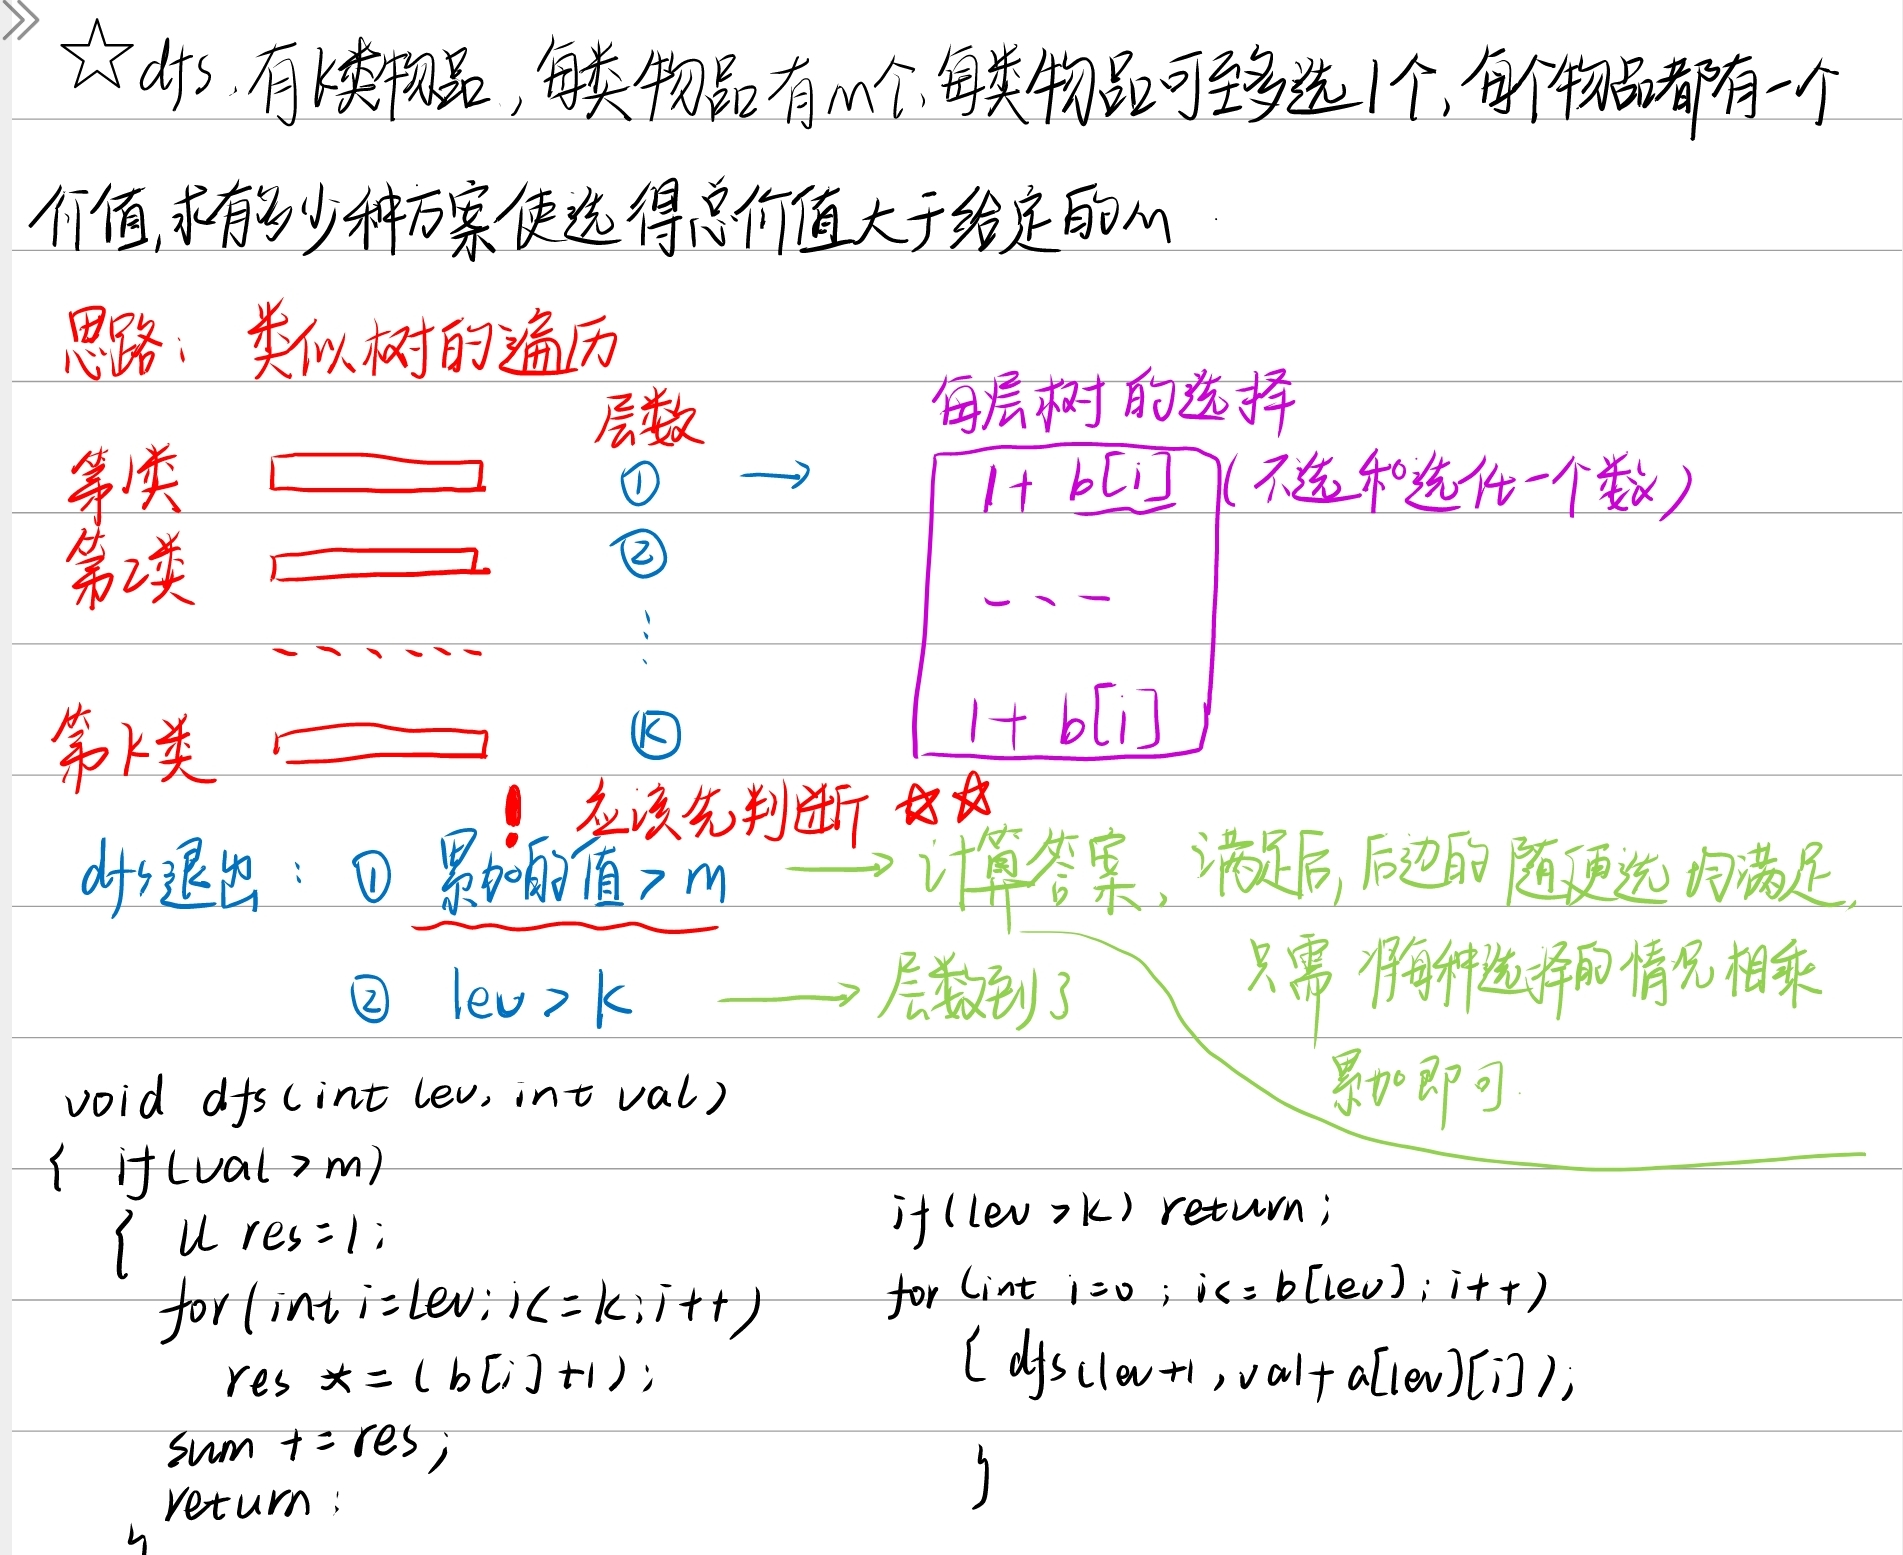 ☆dfs. 有k类物品, 每类物品有m个, 每类物品可至多选1个, 每个物品都有一个
价值, 求有多少种方案使选得总价值大于给定的m
思路: 类似树的遍历
层数
每层树的选择
第1类 ① → 1 + b[i] (不选和选任一个数)
第2类 ②
第k类 Ⓚ 1 + b[i]
! 应该先判断 ☆☆
dfs退出: ① 累加的值 > m → 计算答案, 满足后, 后边的随便选均满足,
只需 将每种选择的情况相乘
② lev > k → 层数到了
累加即可.
void dfs(int lev, int val)
{ if(val > m)
{ ll res = 1;
for(int i=lev; i<=k; i++)
res *= (b[i]+1);
sum += res;
return;
}
if(lev > k) return;
for (int i=0; i<= b[lev]; i++)
{ dfs(lev+1, val+a[lev][i]);
}